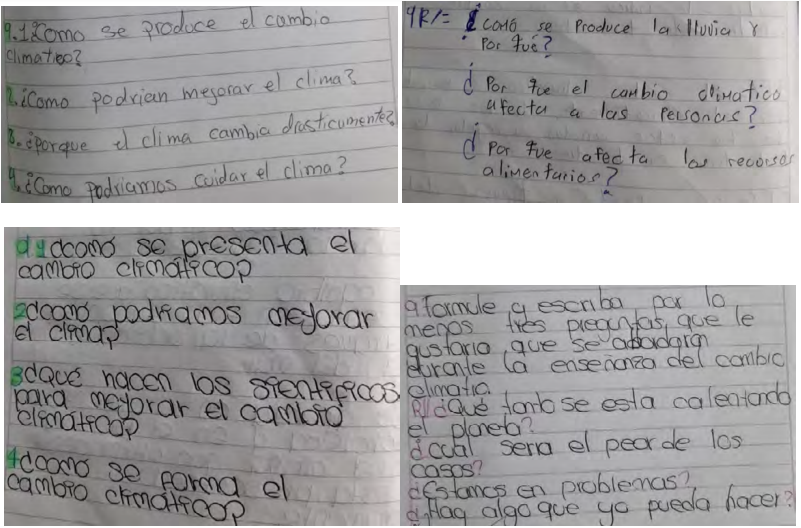 9.1¿Como se produce el cambio
climatico?
2.¿Como podrian mejorar el clima?
3.¿porque el clima cambia drasticumente?
4.¿Como podriamos cuidar el clima?
9R/= ¿como se Produce la lluvia y
Por que?
¿ Por que el cambio climatico
afecta a las Personas?
¿ Por que afecta los recursos
alimentarios?
d 1¿como se presenta el
cambio climático?
2¿como podriamos mejorar
el clima?
3¿Qué hacen los sientificos
para mejorar el cambio
climático?
4¿como se forma el
cambio climático?
9 formule y escriba por lo
menos tres preguntas que le
gustaria que se abordaran
durante la enseñanza del cambio
climatic.
R/¿Qué tanto se esta calentando
el planeta?
¿cual seria el peor de los
casos?
¿Estamos en problemas?
¿Hay algo que yo pueda hacer?